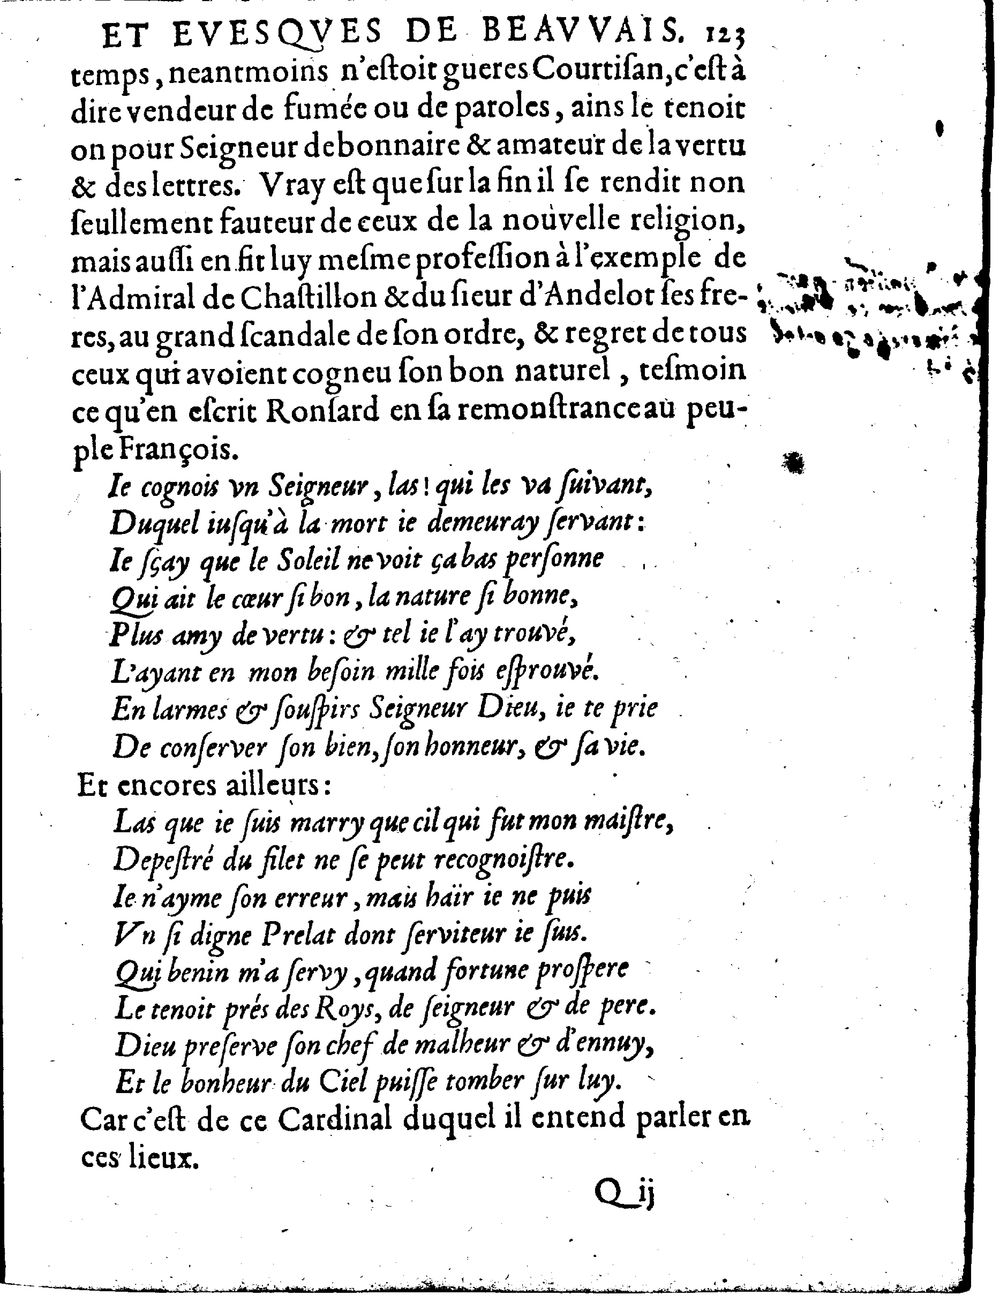 ET EVESQVES DE BEAVVAIS. 123
temps, neantmoins n'eſtoit gueres Courtiſan, c'eſt à
dire vendeur de fumée ou de paroles, ains le tenoit
on pour Seigneur debonnaire & amateur de la vertu
& des lettres. Vray eſt que ſur la fin il ſe rendit non
ſeullement fauteur de ceux de la nouvelle religion,
mais auſſi en fit luy meſme profeſſion à l'exemple de
l'Admiral de Chaſtillon & du ſieur d'Andelot ſes fre-
res, au grand ſcandale de ſon ordre, & regret de tous
ceux qui avoient cogneu ſon bon naturel, teſmoin
ce qu'en eſcrit Ronſard en ſa remonſtrance au peu-
ple François.
Ie cognois vn Seigneur, las! qui les va ſuivant,
Duquel iuſqu'à la mort ie demeuray ſervant:
Ie ſçay que le Soleil ne voit ça bas perſonne
Qui ait le cœur ſi bon, la nature ſi bonne,
Plus amy de vertu: & tel ie l'ay trouvé,
L'ayant en mon beſoin mille fois eſprouvé.
En larmes & ſouſpirs Seigneur Dieu, ie te prie
De conſerver ſon bien, ſon honneur, & ſa vie.
Et encores ailleurs:
Las que ie ſuis marry que cil qui fut mon maiſtre,
Depeſtré du filet ne ſe peut recognoiſtre.
Ie n'ayme ſon erreur, mais haïr ie ne puis
Vn ſi digne Prelat dont ſerviteur ie ſuis.
Qui benin m'a ſervy, quand fortune proſpere
Le tenoit prés des Roys, de ſeigneur & de pere.
Dieu preſerve ſon chef de malheur & d'ennuy,
Et le bonheur du Ciel puiſſe tomber ſur luy.
Car c'eſt de ce Cardinal duquel il entend parler en
ces lieux.
Q ij